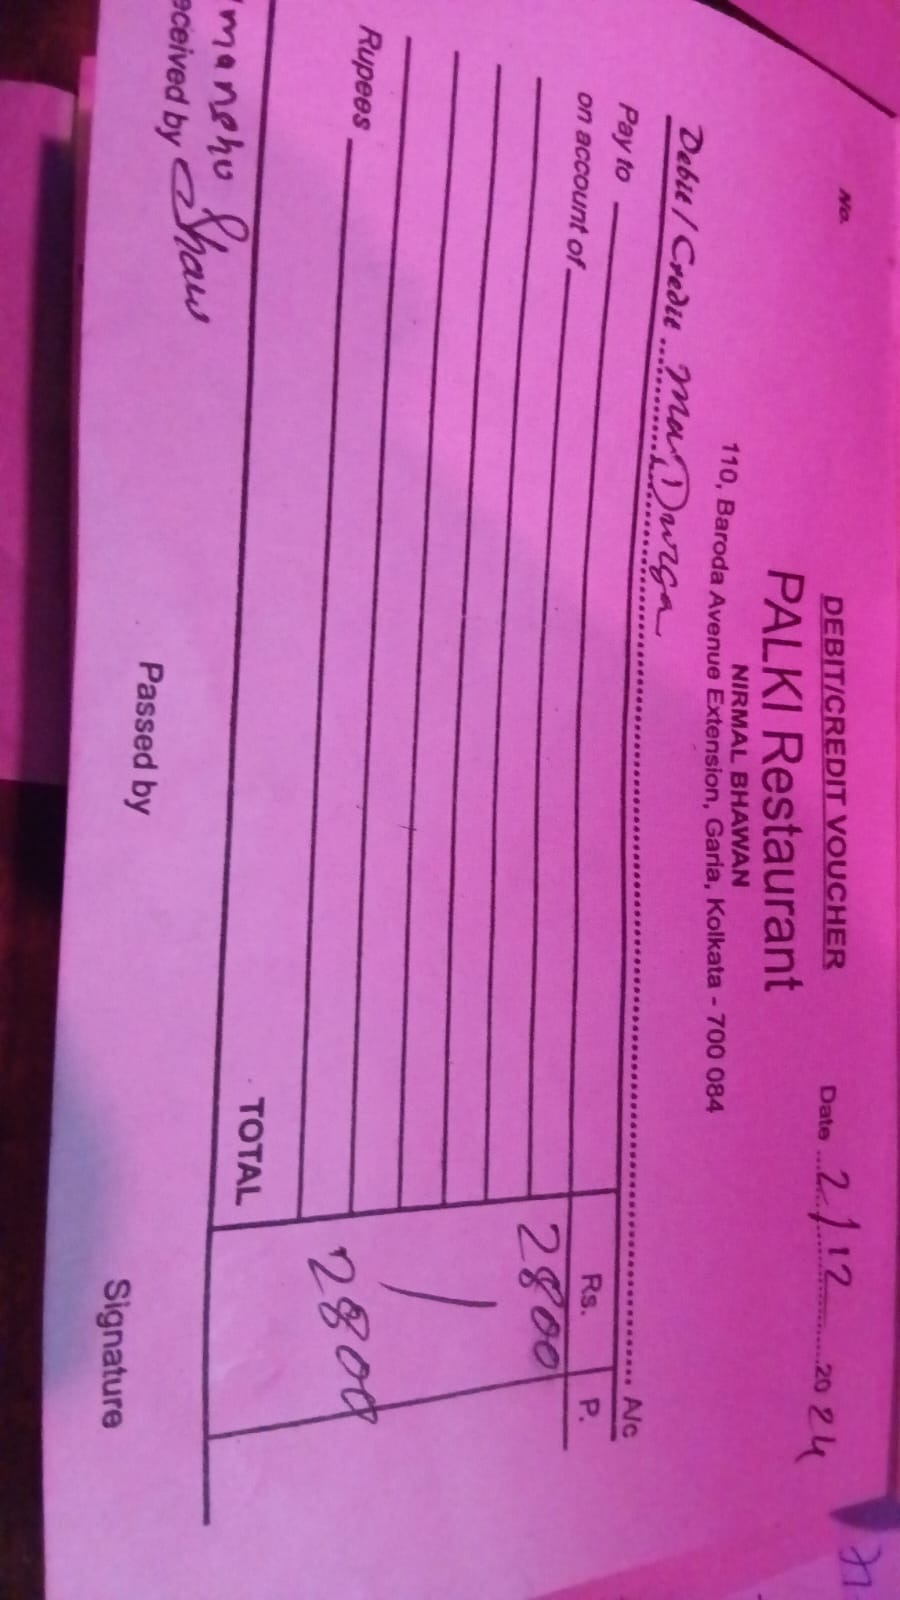 DEBIT/CREDIT VOUCHER
No.
Date 2/12 2024
PALKI Restaurant
NIRMAL BHAWAN
110, Baroda Avenue Extension, Garia, Kolkata - 700 084
Debit / Credit Maa Durga A/c
Pay to Rs. P.
on account of 2800
Rupees
2800
TOTAL
manshu Shaw
eceived by Passed by Signature